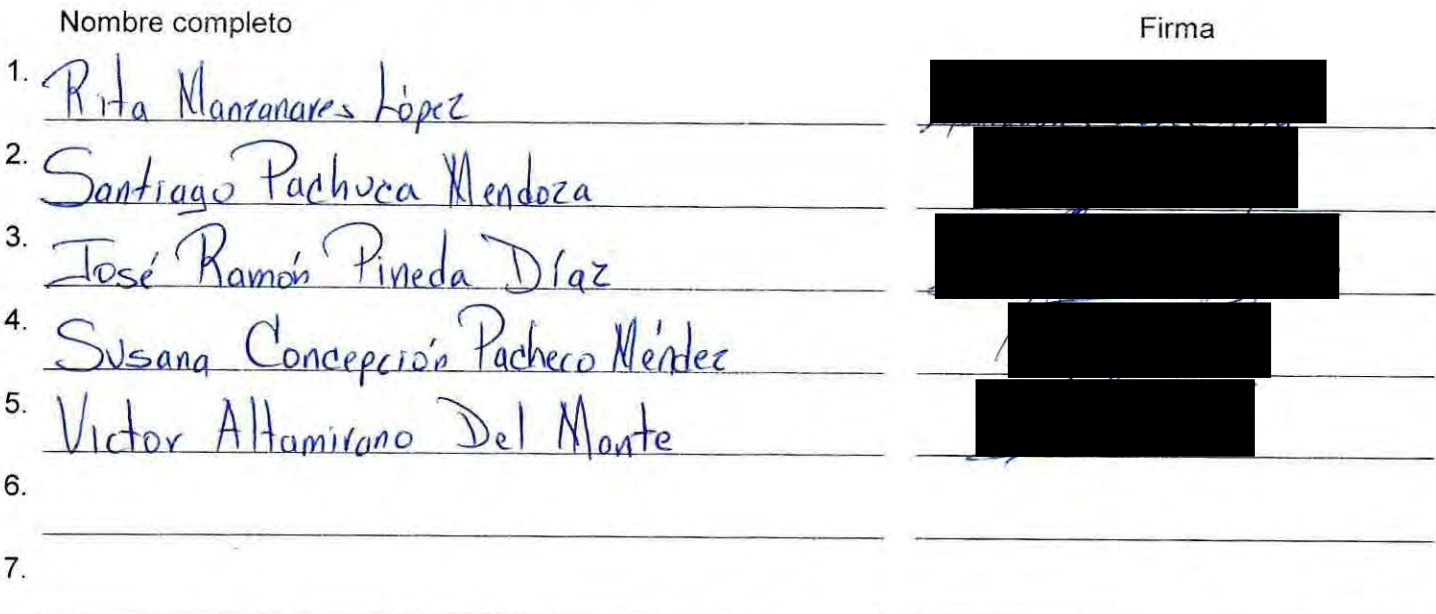 Nombre completo Firma
1. Rita Manzanares López
2. Santiago Pachuca Mendoza
3. José Ramón Pineda Díaz
4. Susana Concepción Pacheco Méndez
5. Victor Altamirano Del Monte
6.
7.